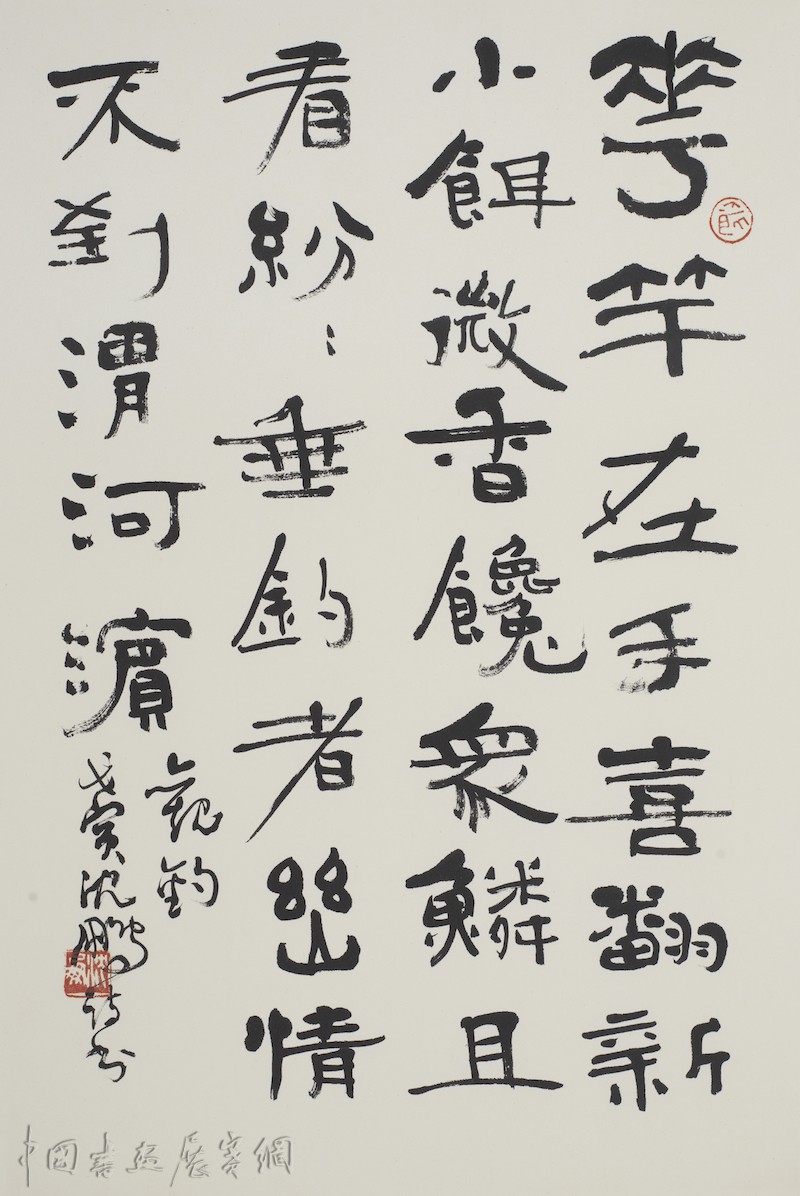 華竿在手喜翻新
小餌微香饞衆鱗且
看紛〻垂釣者幽情
不到渭河濱
觀釣
戊寅沈鵬詩書
中國書畫展賽網